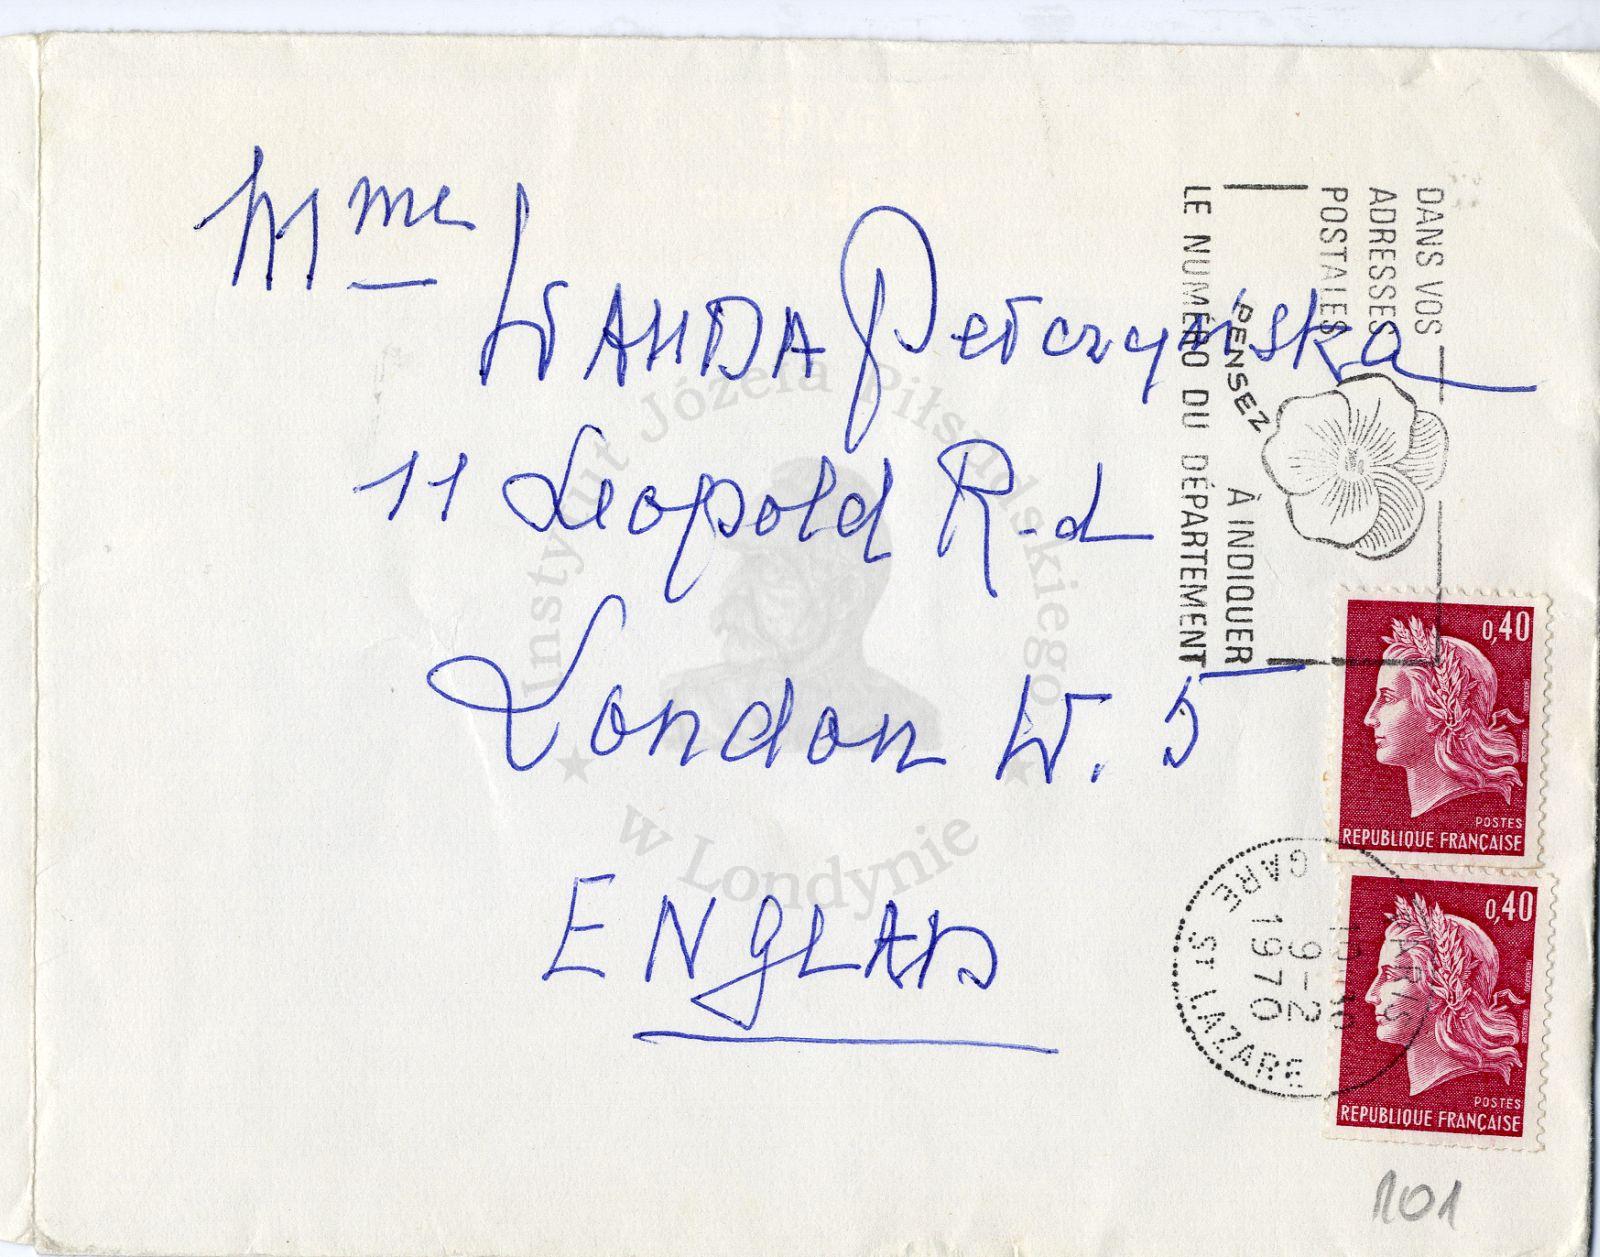 Mme
WANDA Pełczyńska
11 Leopold R-d
London W. 5
ENGLAND
DANS VOS
ADRESSES
POSTALES
PENSEZ
À INDIQUER
LE NUMÉRO DU DÉPARTEMENT
0,40
POSTES
REPUBLIQUE FRANÇAISE
0,40
POSTES
REPUBLIQUE FRANÇAISE
PARIS
9-2
1970
GARE ST LAZARE
101
Instytut Józefa Piłsudskiego
w Londynie